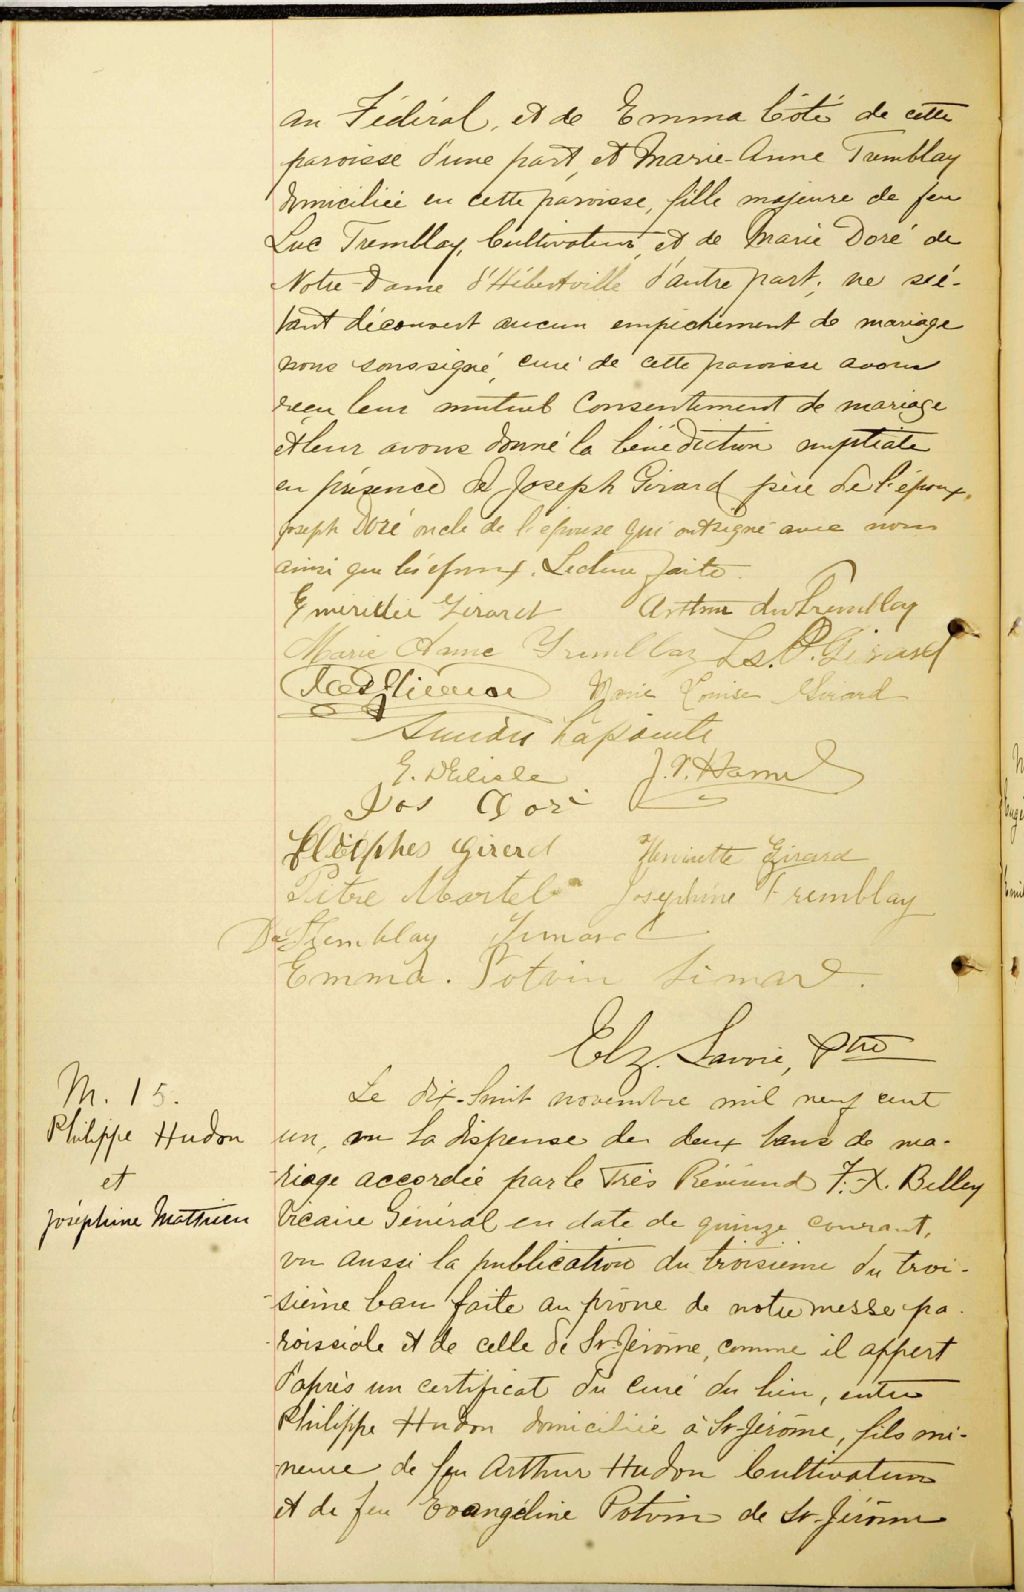 au Fédéral, et de Emma Côté de cette
paroisse d'une part, et Marie-Anne Tremblay
domiciliée en cette paroisse, fille majeure de feu
Luc Tremblay, Cultivateur, et de Marie Doré de
Notre-Dame d'Hébertville d'autre part; ne s'é-
tant découvert aucun empêchement de mariage
nous soussigné, curé de cette paroisse avons
reçu leur mutuel consentement de mariage
et leur avons donné la bénédiction nuptiale
en présence de Joseph Girard père de l'époux,
Joseph Doré oncle de l'épouse qui ont signé avec nous
ainsi que les époux. Lecture faite.
Girard Arthur Tremblay
Marie Anne Tremblay Ls. P. Girard
Marie Louise Girard
Lapointe
E. Delisle J. P. Hamel
Jos Doré
Cléophes Girerd Henriette Girard
Pitre Martel Josephine Tremblay
Tremblay Simard
Emma. Potvin Simard.
Elz. Lavoie, Ptre
M. 15.
Philippe Hudon
et
Joséphine Mathieu
Le dix-huit novembre mil neuf cent
un, vu la dispense de deux bans de ma-
-riage accordée par le Très Révérend F.-X. Belley
Vicaire Général en date de quinze courant,
vu aussi la publication du troisième du troi-
-sième ban faite au prône de notre messe pa-
-roissiale et de celle de St-Jérôme, comme il appert
d'après un certificat du curé du lieu, entre
Philippe Hudon domicilié à St-Jérôme, fils mi-
-neure de feu Arthur Hudon Cultivateur
et de feu Evangéline Potvin de St-Jérôme